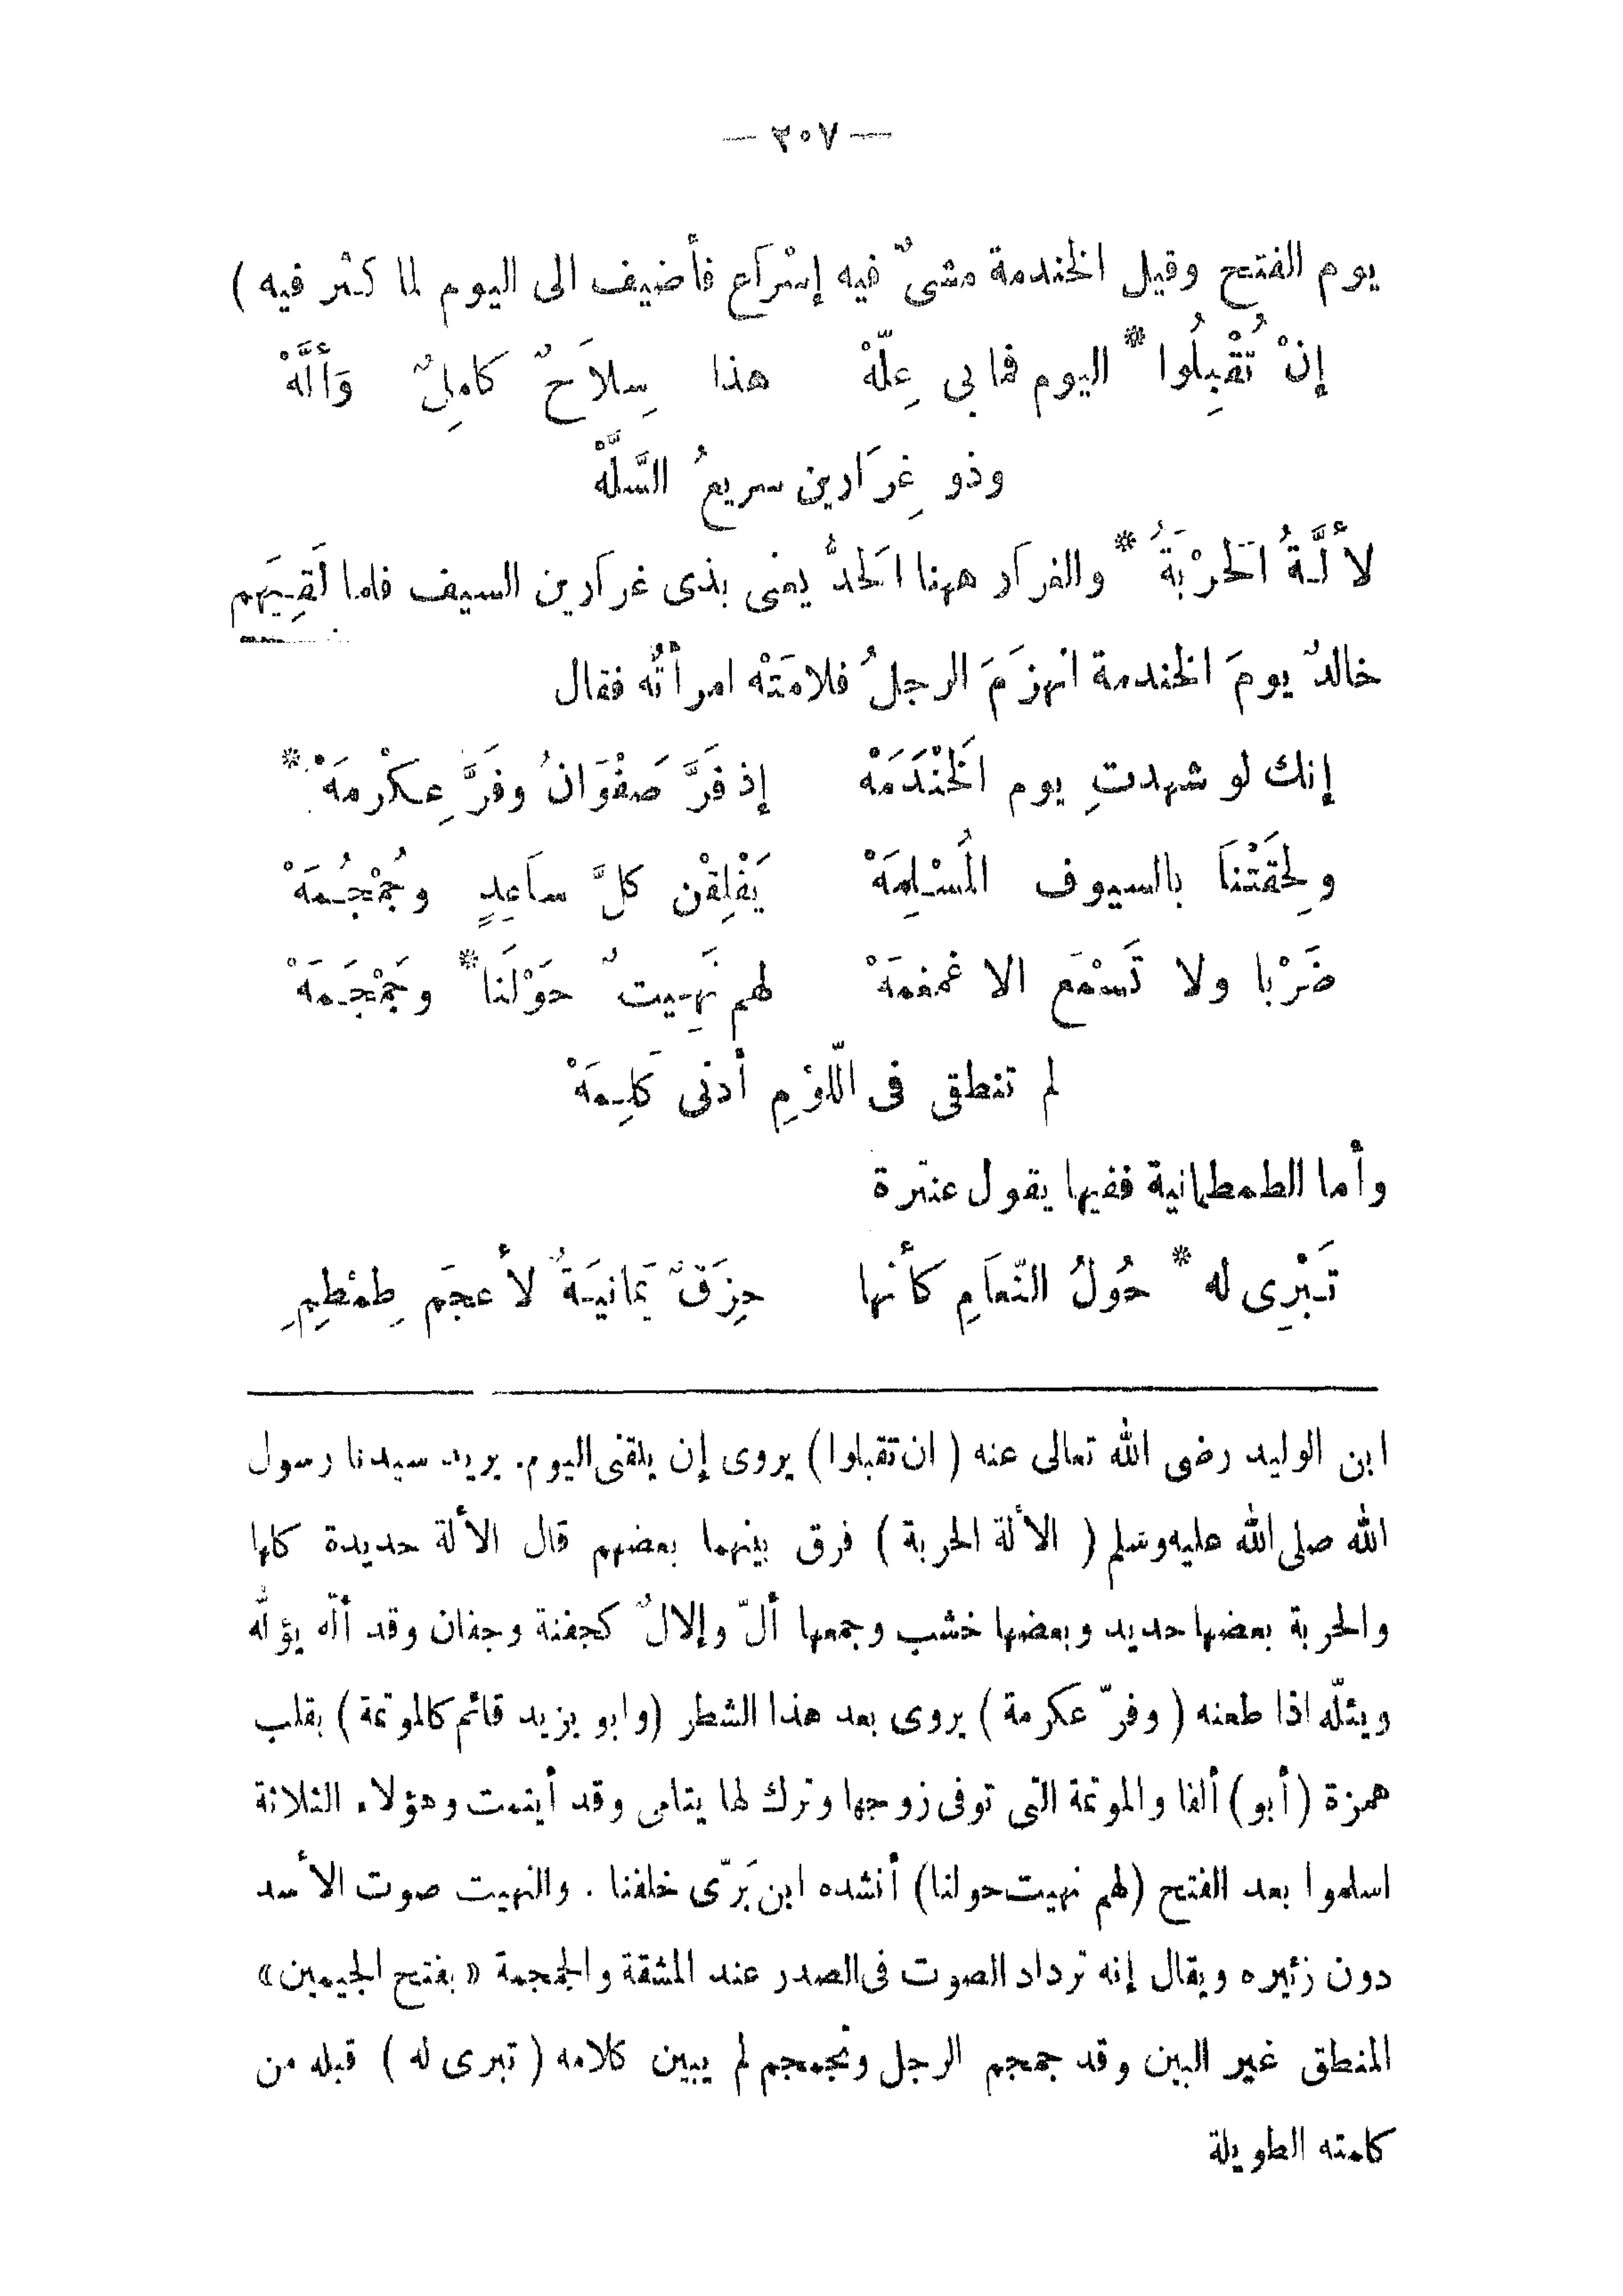 — ٢٠٧ —
يوم الفتح وقيل الخندمة مشىٌ فيه إسْرَاع فأضيف الى اليوم لما كثر فيه )
إنْ تُقْبِلُوا * اليوم فما بى عِلّهْ هذا سِلاَحٌ كامِلٌ وَألَّهْ
وذو غِرَارين سريعُ السَّلَّهْ
لأَلَّةُ الَحرْبَةُ * والغرَار ههنا الَحدُّ يعنى بذى غرَارين السيف فلما لَقِيَهم
خالدٌ يومَ الخندمة انهزَمَ الرجلُ فلامَتْه امرأتُه فقال
إنك لو شهدتِ يوم الَخنْدَمَهْ إذ فَرَّ صَفْوَانُ وفَرَّ عِكْرمَهْ *
ولِحقَتْنَا بالسيوف المُسْلِمَهْ يَفْلِقْن كلَّ ساَعِدٍ وجُمْجُمَهْ
ضَرْبا ولا تَسْمَع الا غمغمَهْ لهم نَهِيتٌ حَوْلَنَا * وجَمْجَمَهْ
لم تنطقى فى الّلوْمِ أدنى كَلِمَهْ
وأما الطمطمانية ففيها يقول عنترة
تَبْرِى له * حُولُ النّعاَمِ كأنها حِزَقٌ يَمانيَةٌ لأعجَم طِمْطِمِ
ابن الوليد رضى الله تعالى عنه ( ان تقبلوا ) يروى إن يلقنى اليوم. يريد سيدنا رسول
الله صلى الله عليه وسلم ( الألة الحربة ) فرق بينهما بعضهم قال الألة حديدة كلها
والحربة بعضها حديد وبعضها خشب وجمعها ألّ وإلالٌ كجفنة وجفان وقد ألّه يؤلّه
ويئلّه اذا طعنه ( وفرّ عكرمة ) يروى بعد هذا الشطر (وابو يزيد قائم كالموتمة ) بقلب
همزة ( أبو ) ألفا والموتمة التى توفى زوجها وترك لها يتامى وقد أيتمت وهؤلاء الثلاثة
اسلموا بعد الفتح (لهم نهيت حولنا) أنشده ابن بَرّى خلفنا . والنهيت صوت الأسد
دون زئيره ويقال إنه ترداد الصوت فى الصدر عند المشقة والجمجمة « بفتح الجيمين »
المنطق غير البين وقد جمجم الرجل وتجمجم لم يبين كلامه ( تبرى له ) قبله من
كلمته الطويلة